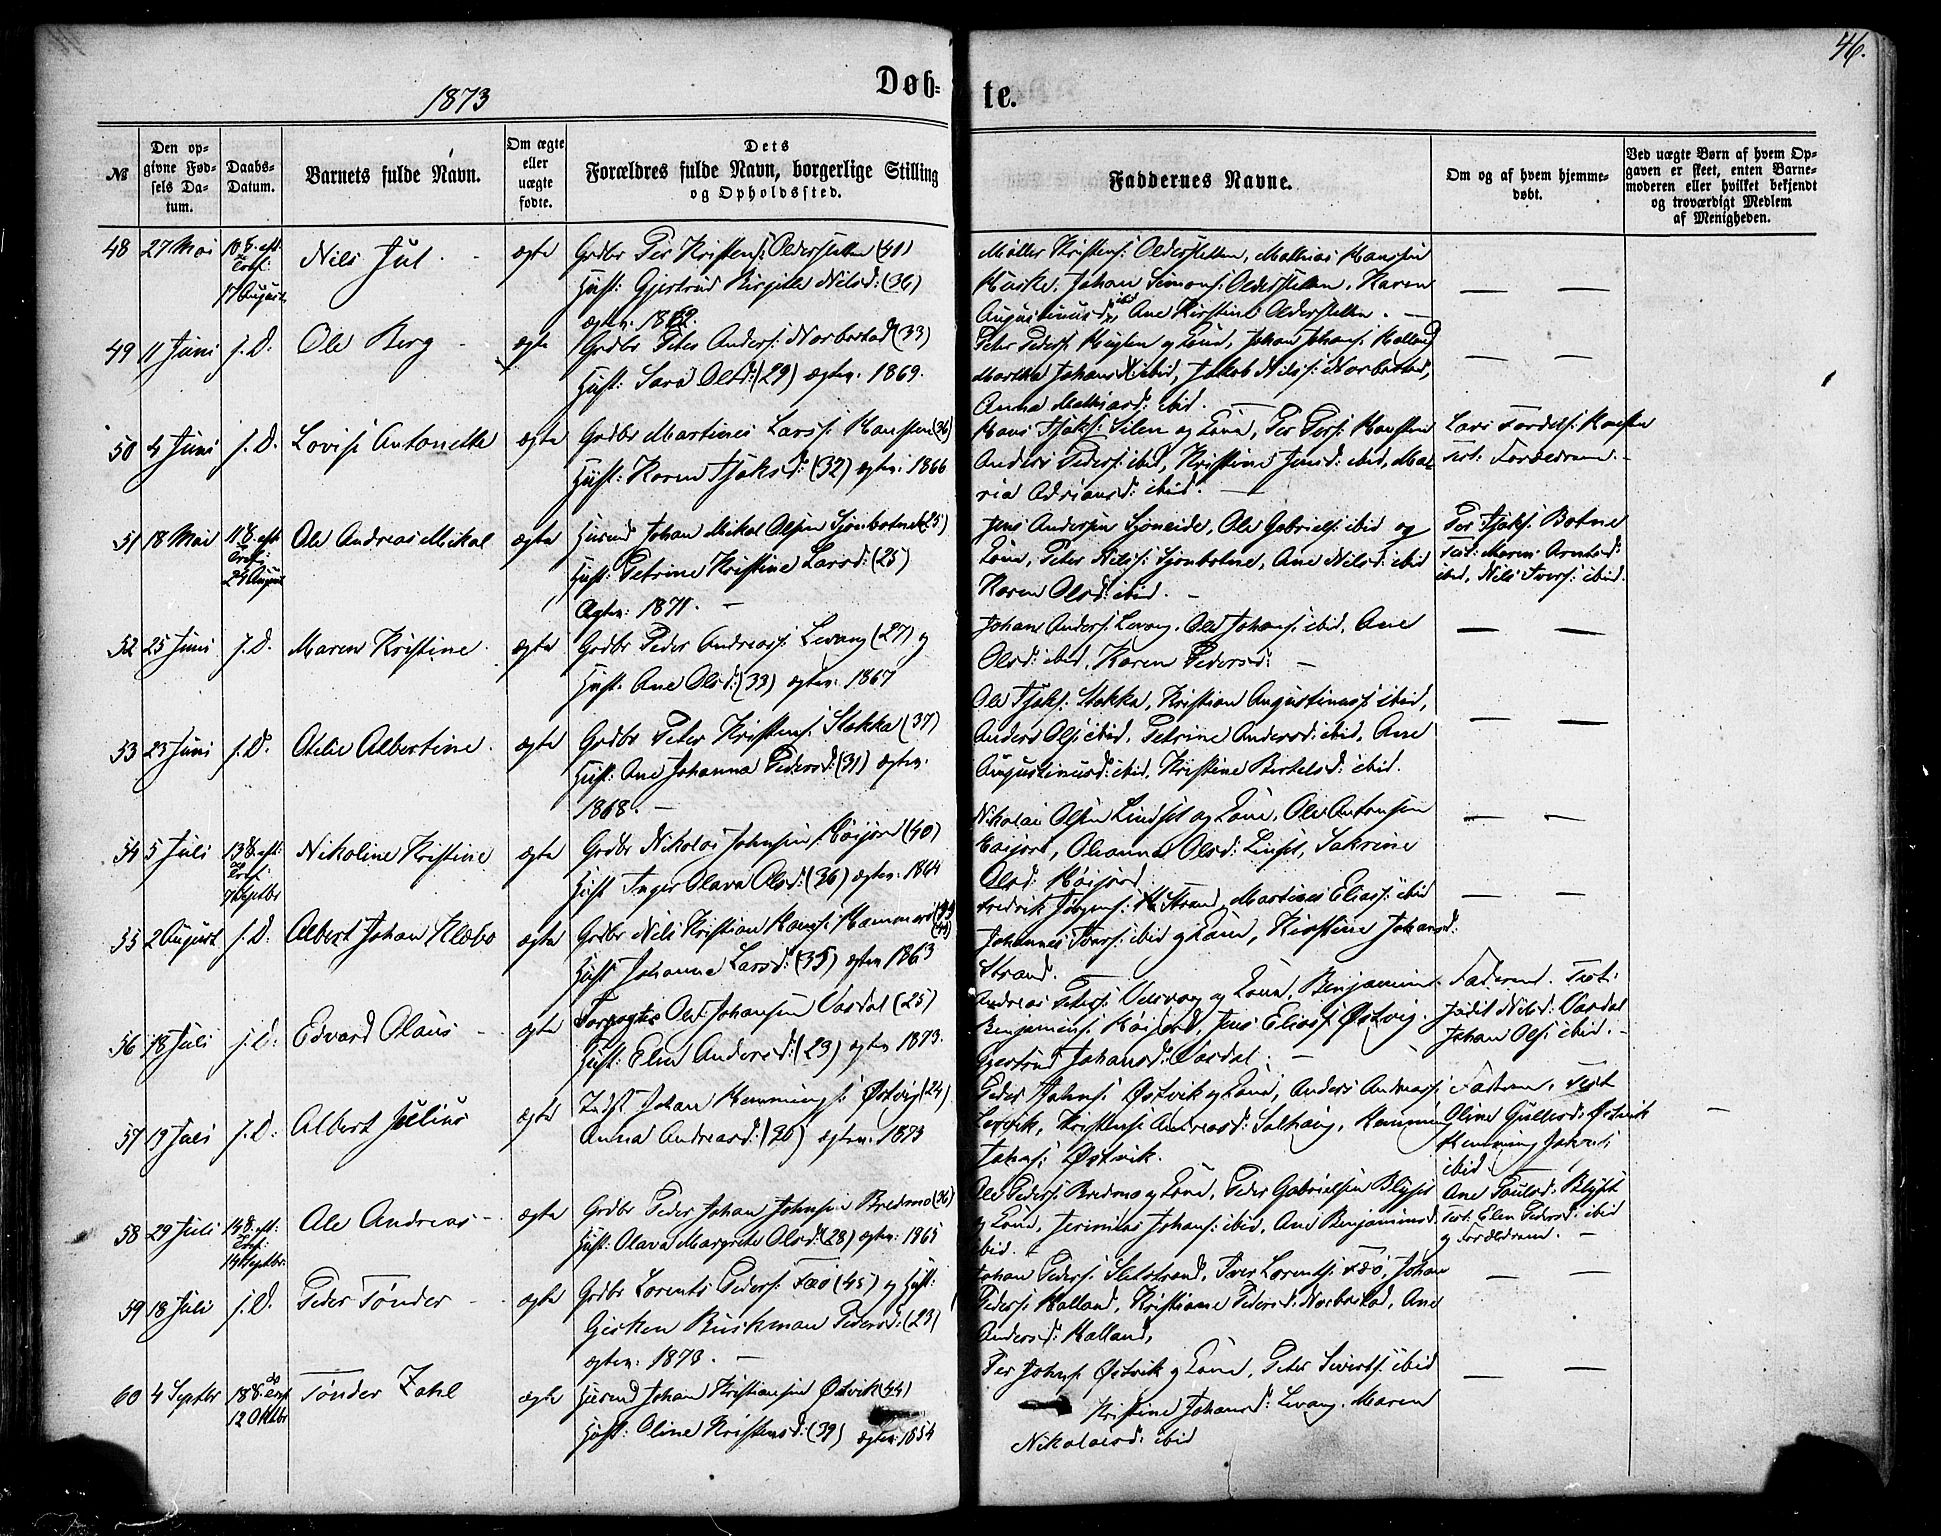 46.
1873
Døb-
te.
№
Den opgivne Fødsels Datum.
Daabs-Datum.
Barnets fulde Navn.
Om ægte eller uægte fødte.
Dets Forældres fulde Navn, borgerlige Stilling og Opholdssted.
Faddernes Navne.
Om og af hvem hjemmedøbt.
Ved uægte Børn af hvem Opgaven er skeet, enten Barnemoderen eller hvilket bekjendt og troværdigt Medlem af Menigheden.
48 27 Mai 10 S. eft. Tref: 17 August Nils Jul ægte
Grdbr Per Kristens: Olderskellen (41)
Hust: Gjertrud Birgitte Nilsd: (36)
ægtev. 1862.
Møller Kristens: Olderskellen, Mathias Hanssen
Johan Simons: Olderskellen, Karen
Augustinusd: ibid, Ane Kirstine Olderskellen. —
— —
49 11 Juni s. D. Ole Berg ægte
Grdbr Peter Anders: Norbostad (33)
Hust: Sara Olsd: (29) ægtev. 1869.
Peter Peders: og Kone, Johan Johans: Halland
Martha Johansd: ibid, Jakob Nils: Norbostad,
Anna Mathiasd: ibid.
— —
50 4 Juni s. D. Lovise Antonette ægte
Grdbr Martines Larss: Hansten (36)
Hust: Karen Isaksd: (32) ægtev: 1866
Hans Isaks: Silen og Kone, Per Pers: Hansten
Anders Peders: ibid, Kristine Jensd: ibid, Ma-
ria Adriansd: ibid. —
Test: Forældrene. -
51 18 Mai 11 S. eft Tref: 24 August Ole Andreas Mikal ægte
Husmd Johan Mikal Olsen Sjonbotnet (25)
Hust: Petrine Kristine Larsd: (25)
Ægtev: 1871. —
Jens Andersen Sjoneide, Ole Gabriels: ibid og
Kone, Peter Nils: Sjonbotne, Ane Nilsd: ibid
Karen Olsd: ibid. -
Per Isaks: Botne
Test: Maren Arntsd:
ibid, Nils Ivers: ibid.
52 25 Juni s. D. Maren Kristine ægte
Grdbr Peder Andreass: Levang (27) og
Hust: Ane Olsd: (33) ægtev. 1867
Johan Anders: Levang, Ole Johans: ibid, Ane
Olsd: ibid, Karen Pedersd: —
— —
53 23 Juni s. D. Otelie Albertine ægte
Grdbr Peter Kristens: Stokka (37)
Hust: Ane Johanna Pedersd: (31) ægtev.
1868. —
Ole Isaks: Stokka, Kristian Augustinuss: ibid,
Anders Ols: ibid, Petrine Andersd: ibid, Ane
Augustinusd: ibid, Kristine Bertelsd: ibid.
— —
54 5 Juli 13 S. eft: Tref: 7 Septbr Nikoline Kristine ægte
Grdbr Nikolai Johnsen Høijord (40)
Hust Inger Olava Olsd: (36) ægtev. 1864
Nikolai Olsen Lindset og Kone, Ole Antonsen
Høijord, Olianna Olsd: Linset, Sakrine
Olsd: Høijord.
— —
55 2 August s. D. Albert Johan Klæbo ægte
Grdbr Nils Kristian Hans: Hammerø
Hust: Johanna Larsd: (35) ægtev 1863
Fredrik Jørgens: Strand, Martines Elias: ibid
Johannes Ivers: ibid og Kone, Kirstine Johansd:
Strand.
— —
56 18 Juli s. D: Edvard Olaus ægte
Ole Johansen Vasdal (25)
Hust: Elen Andersd: (23) ægtev 1873.
Andreas Peters: og Kone, Benjamin
Benjamins: Høijord, Jens Elias: Østvig.
Gjertrud Johansd: Vasdal. —
Faderen. Test:
Judit Nilsd: Vasdal
Johan Ols: ibid. -
57 19 Juli s. D: Albert Julius ægte
Indst Johan Hemmings: Østvig (24)
Anna Andreasd: (20) ægtev. 1873
Peder Johns: Østvik og Kone, Anders Andreass:
Andreasd: Salhaug, Hemming
Johns: Østvik.
Faderen, Test
Oline Gullesd: Østvik
Hemming Johns:
ibid.
—
58 29 Juli 14 S. eft: Tref: 14 Septbr. Ole Andreas ægte
Grdbr Peder Johan Johnsen Bredmo (36)
Hust: Olava Margrete Olsd: (28) ægtev: 1865
Ole Peders: Bredmo og Kone, Peder Gabrielsen Blyset
og Kone, Jeremias Johans: ibid, Ane Benjaminsd:
ibid. —
Ane Paulsd: Blyset
Test: Elen Pedersd: ibid
og Forældrene. -
59 18 Juli s. D. Peder Tønder ægte
Grdbr Lorents Peders: Fæø (45) og Hust:
Gisken Buskman Pedersd: (23)
ægtev. 1873. —
Johan Peders: Sletstrand, Iver Lorents: Fæø, Johan
Peders: Halland, Kristiane Pedersd: Norbostad, Ane
Andersd: Halland,
— —
60 4 Septbr 18 S. eft 12 Oktbr Tønder Zahl ægte
Husmd Johan Kristiansen Østvik (44)
Hust: Oline Kristensd: (39) ægtev: 1854
Per Johns: Østvik og Kone, Peter Siverts: ibid
Kristine Johansd: Levang, Maren
Nikolaisd: ibid
— —